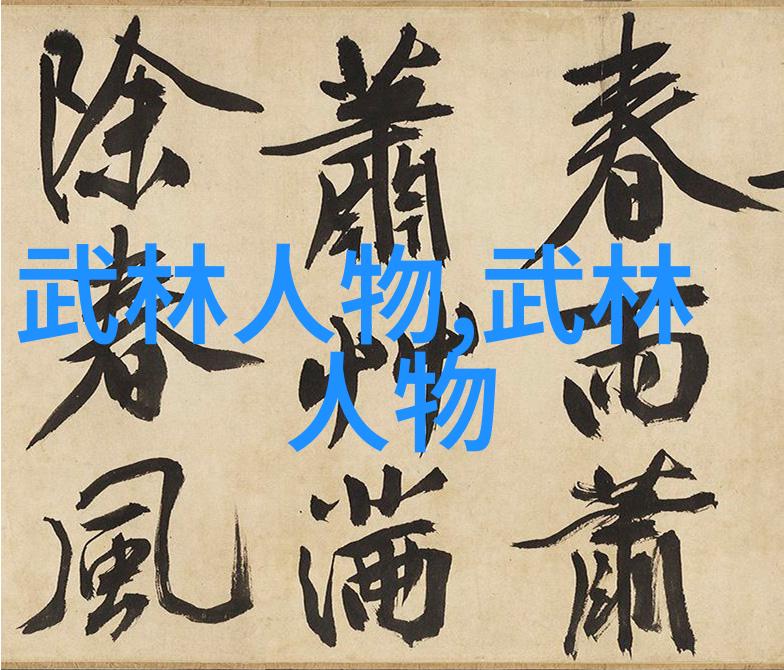 春雨蕭
蕭艸滿
除春風
武林人物,武林
人物